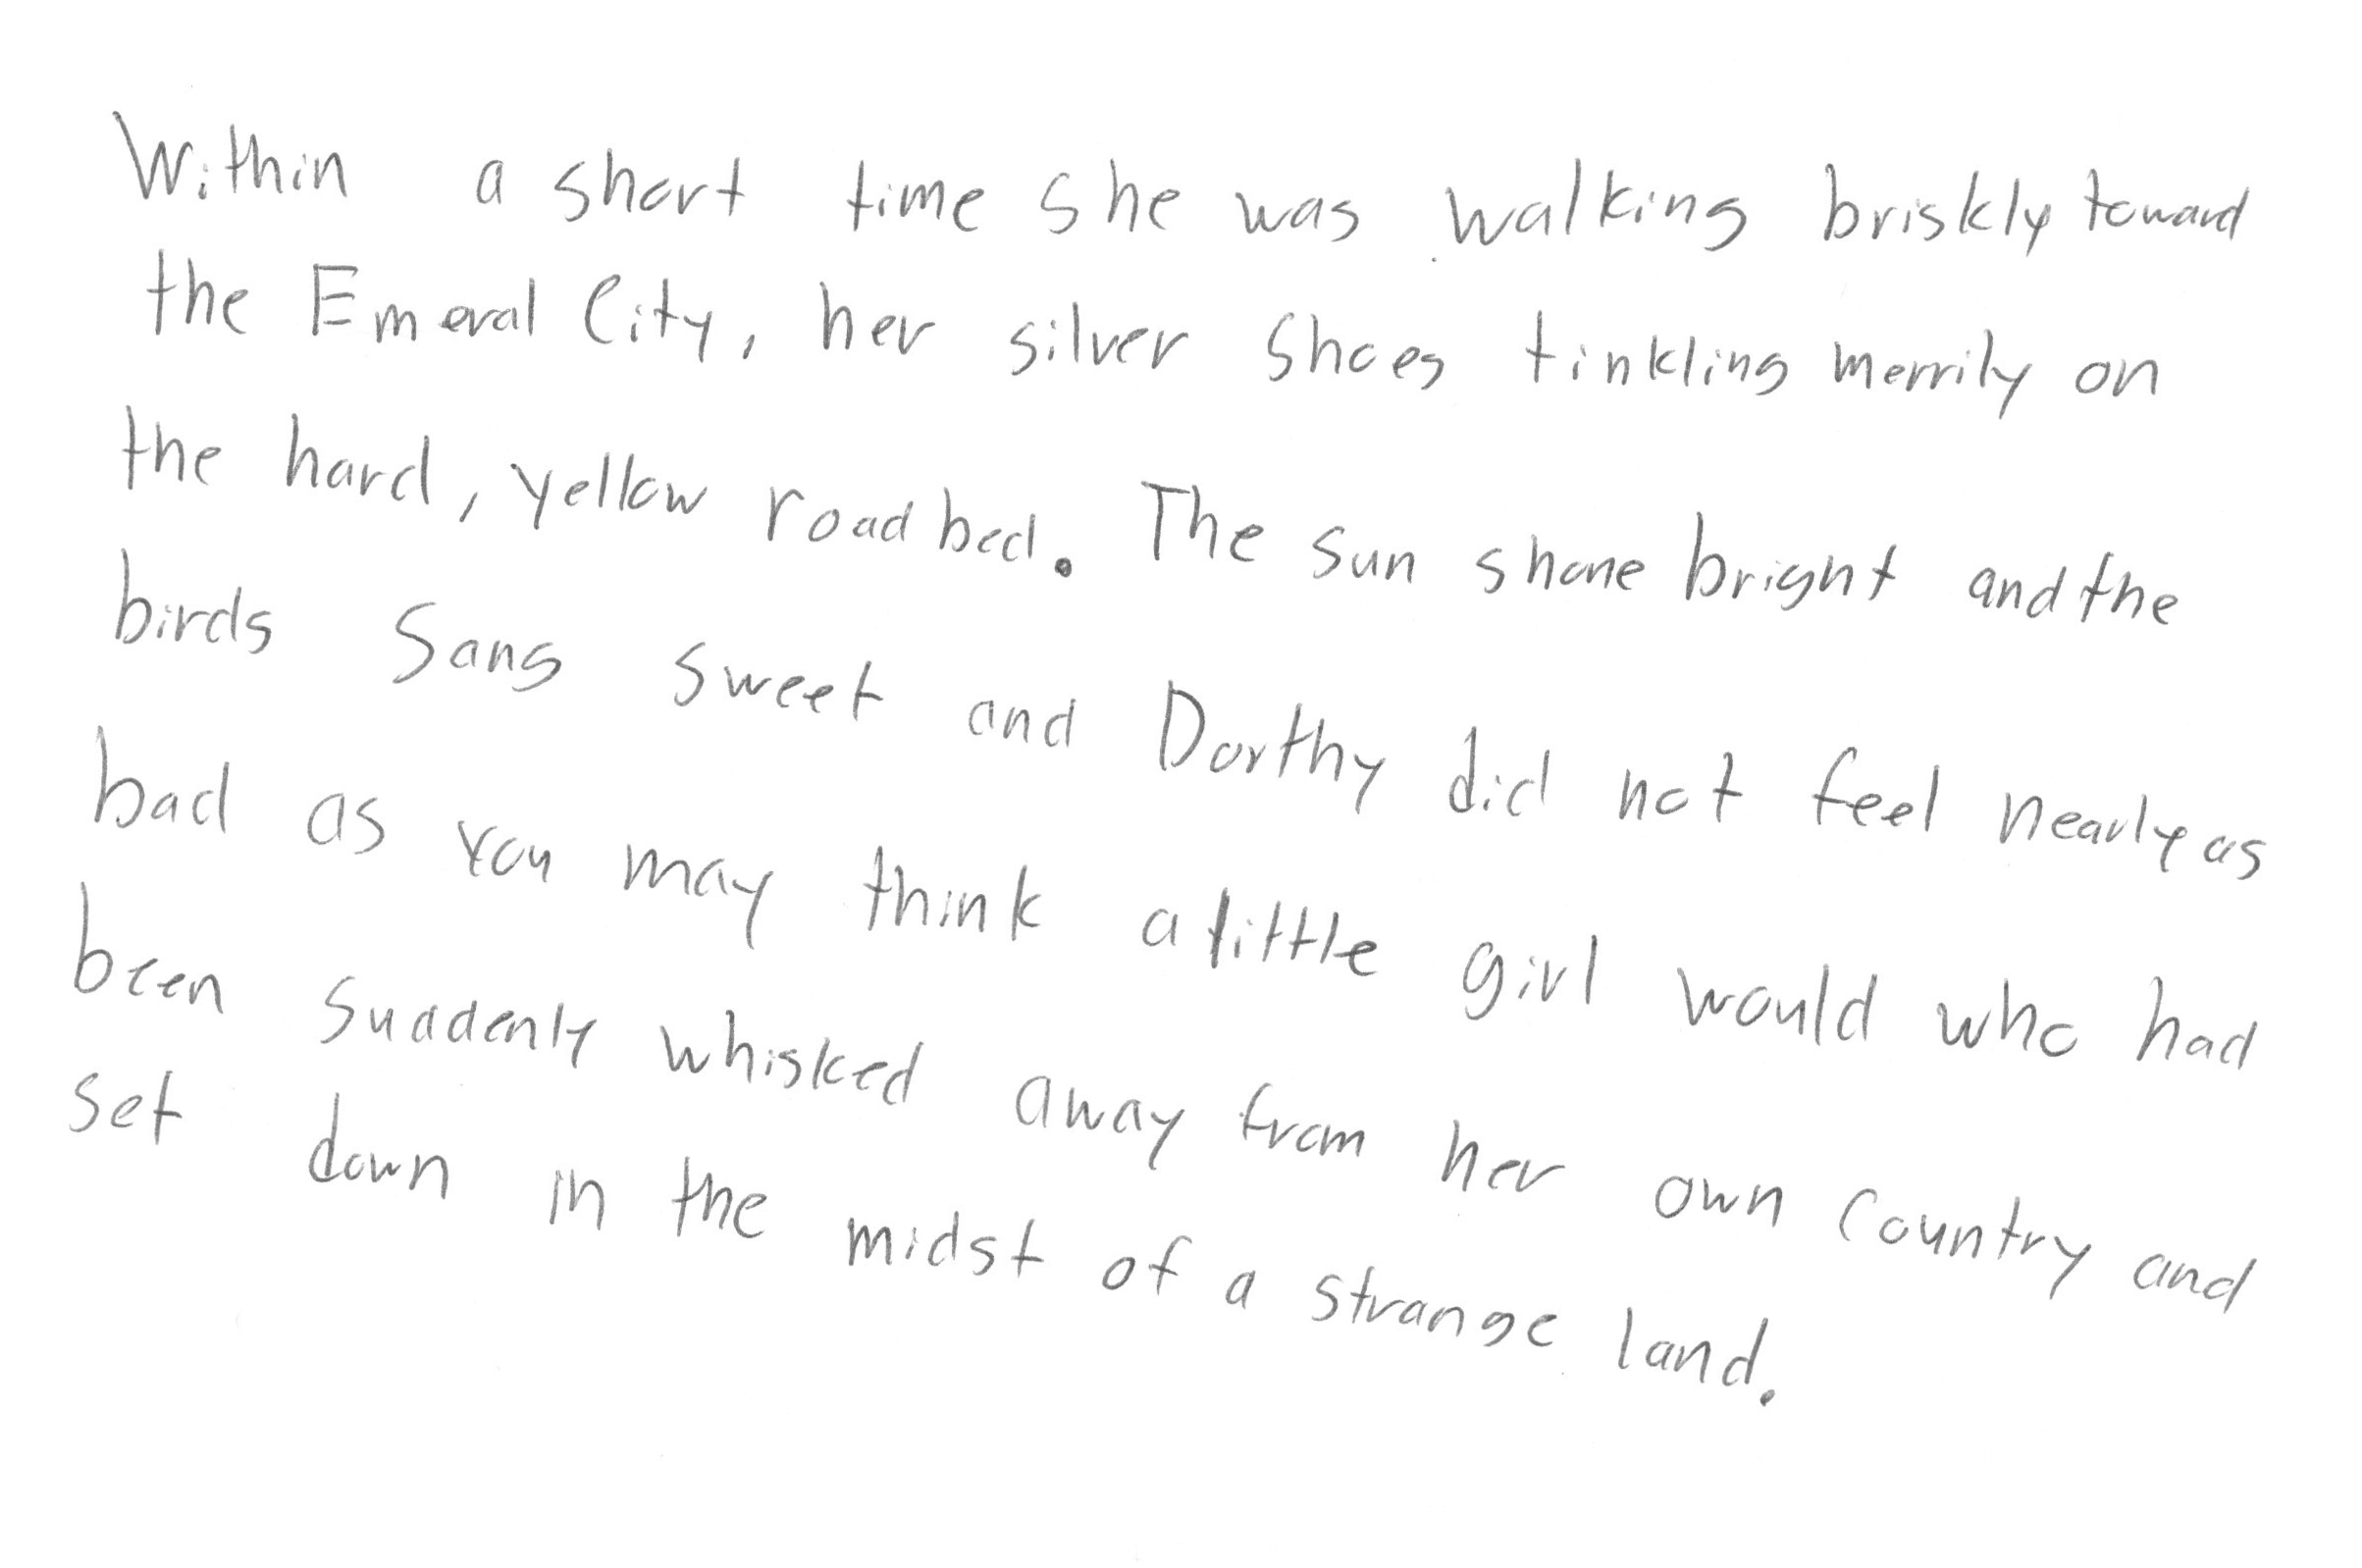 Within a short time she was walking briskly toward
the Emeral City, her silver shoes tinkling merrily on
the hard, yellow road bed. The sun shone bright and the
birds sang sweet and Dorthy did not feel nearly as
bad as you may think a little girl would who had
been suddenly whisked away from her own country and
set down in the midst of a strange land.